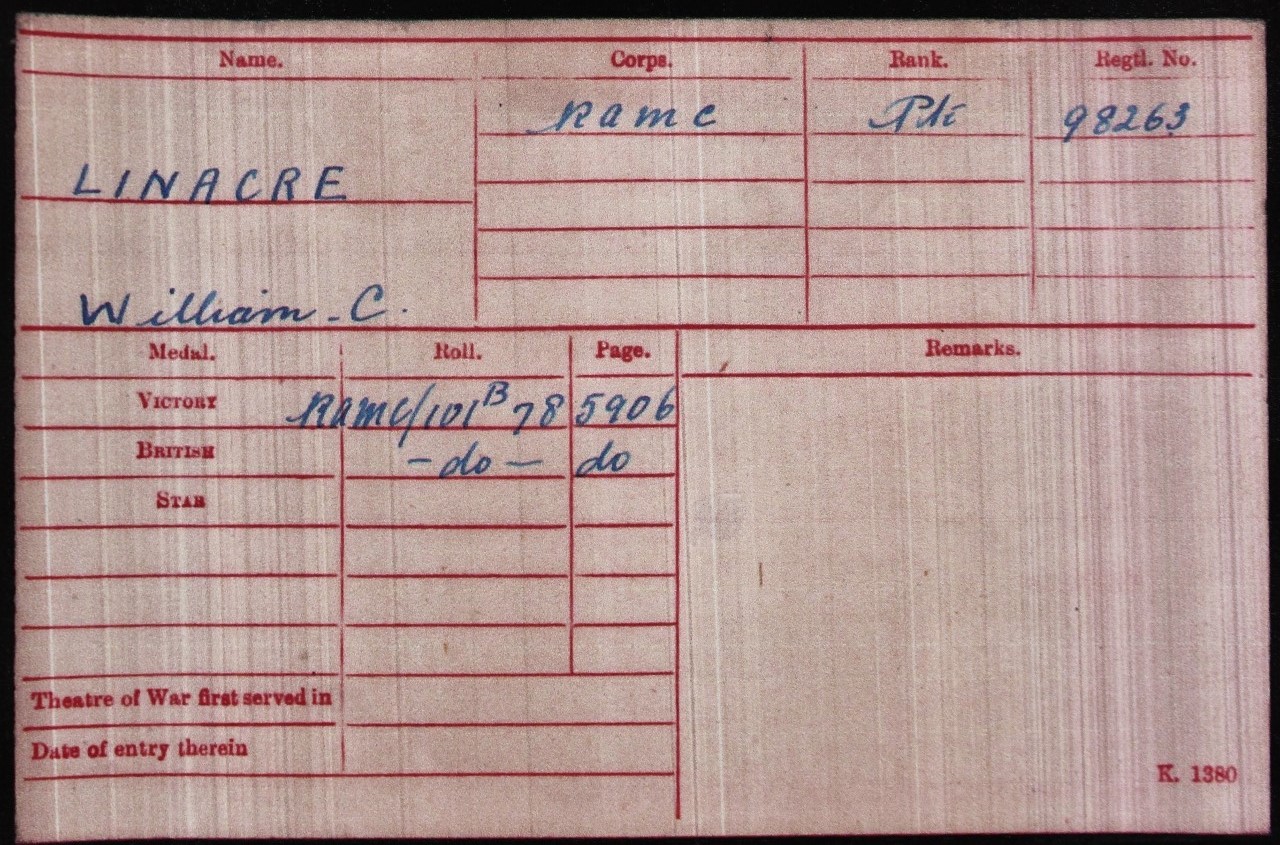 Name. Corps. Rank. Regtl. No.
RAMC Pte 98263
LINACRE
William - C.
Medal. Roll. Page. Remarks.
VICTORY RAMC/101 B 78 5906
BRITISH - do - do
STAR
Theatre of War first served in
Date of entry therein
K. 1380